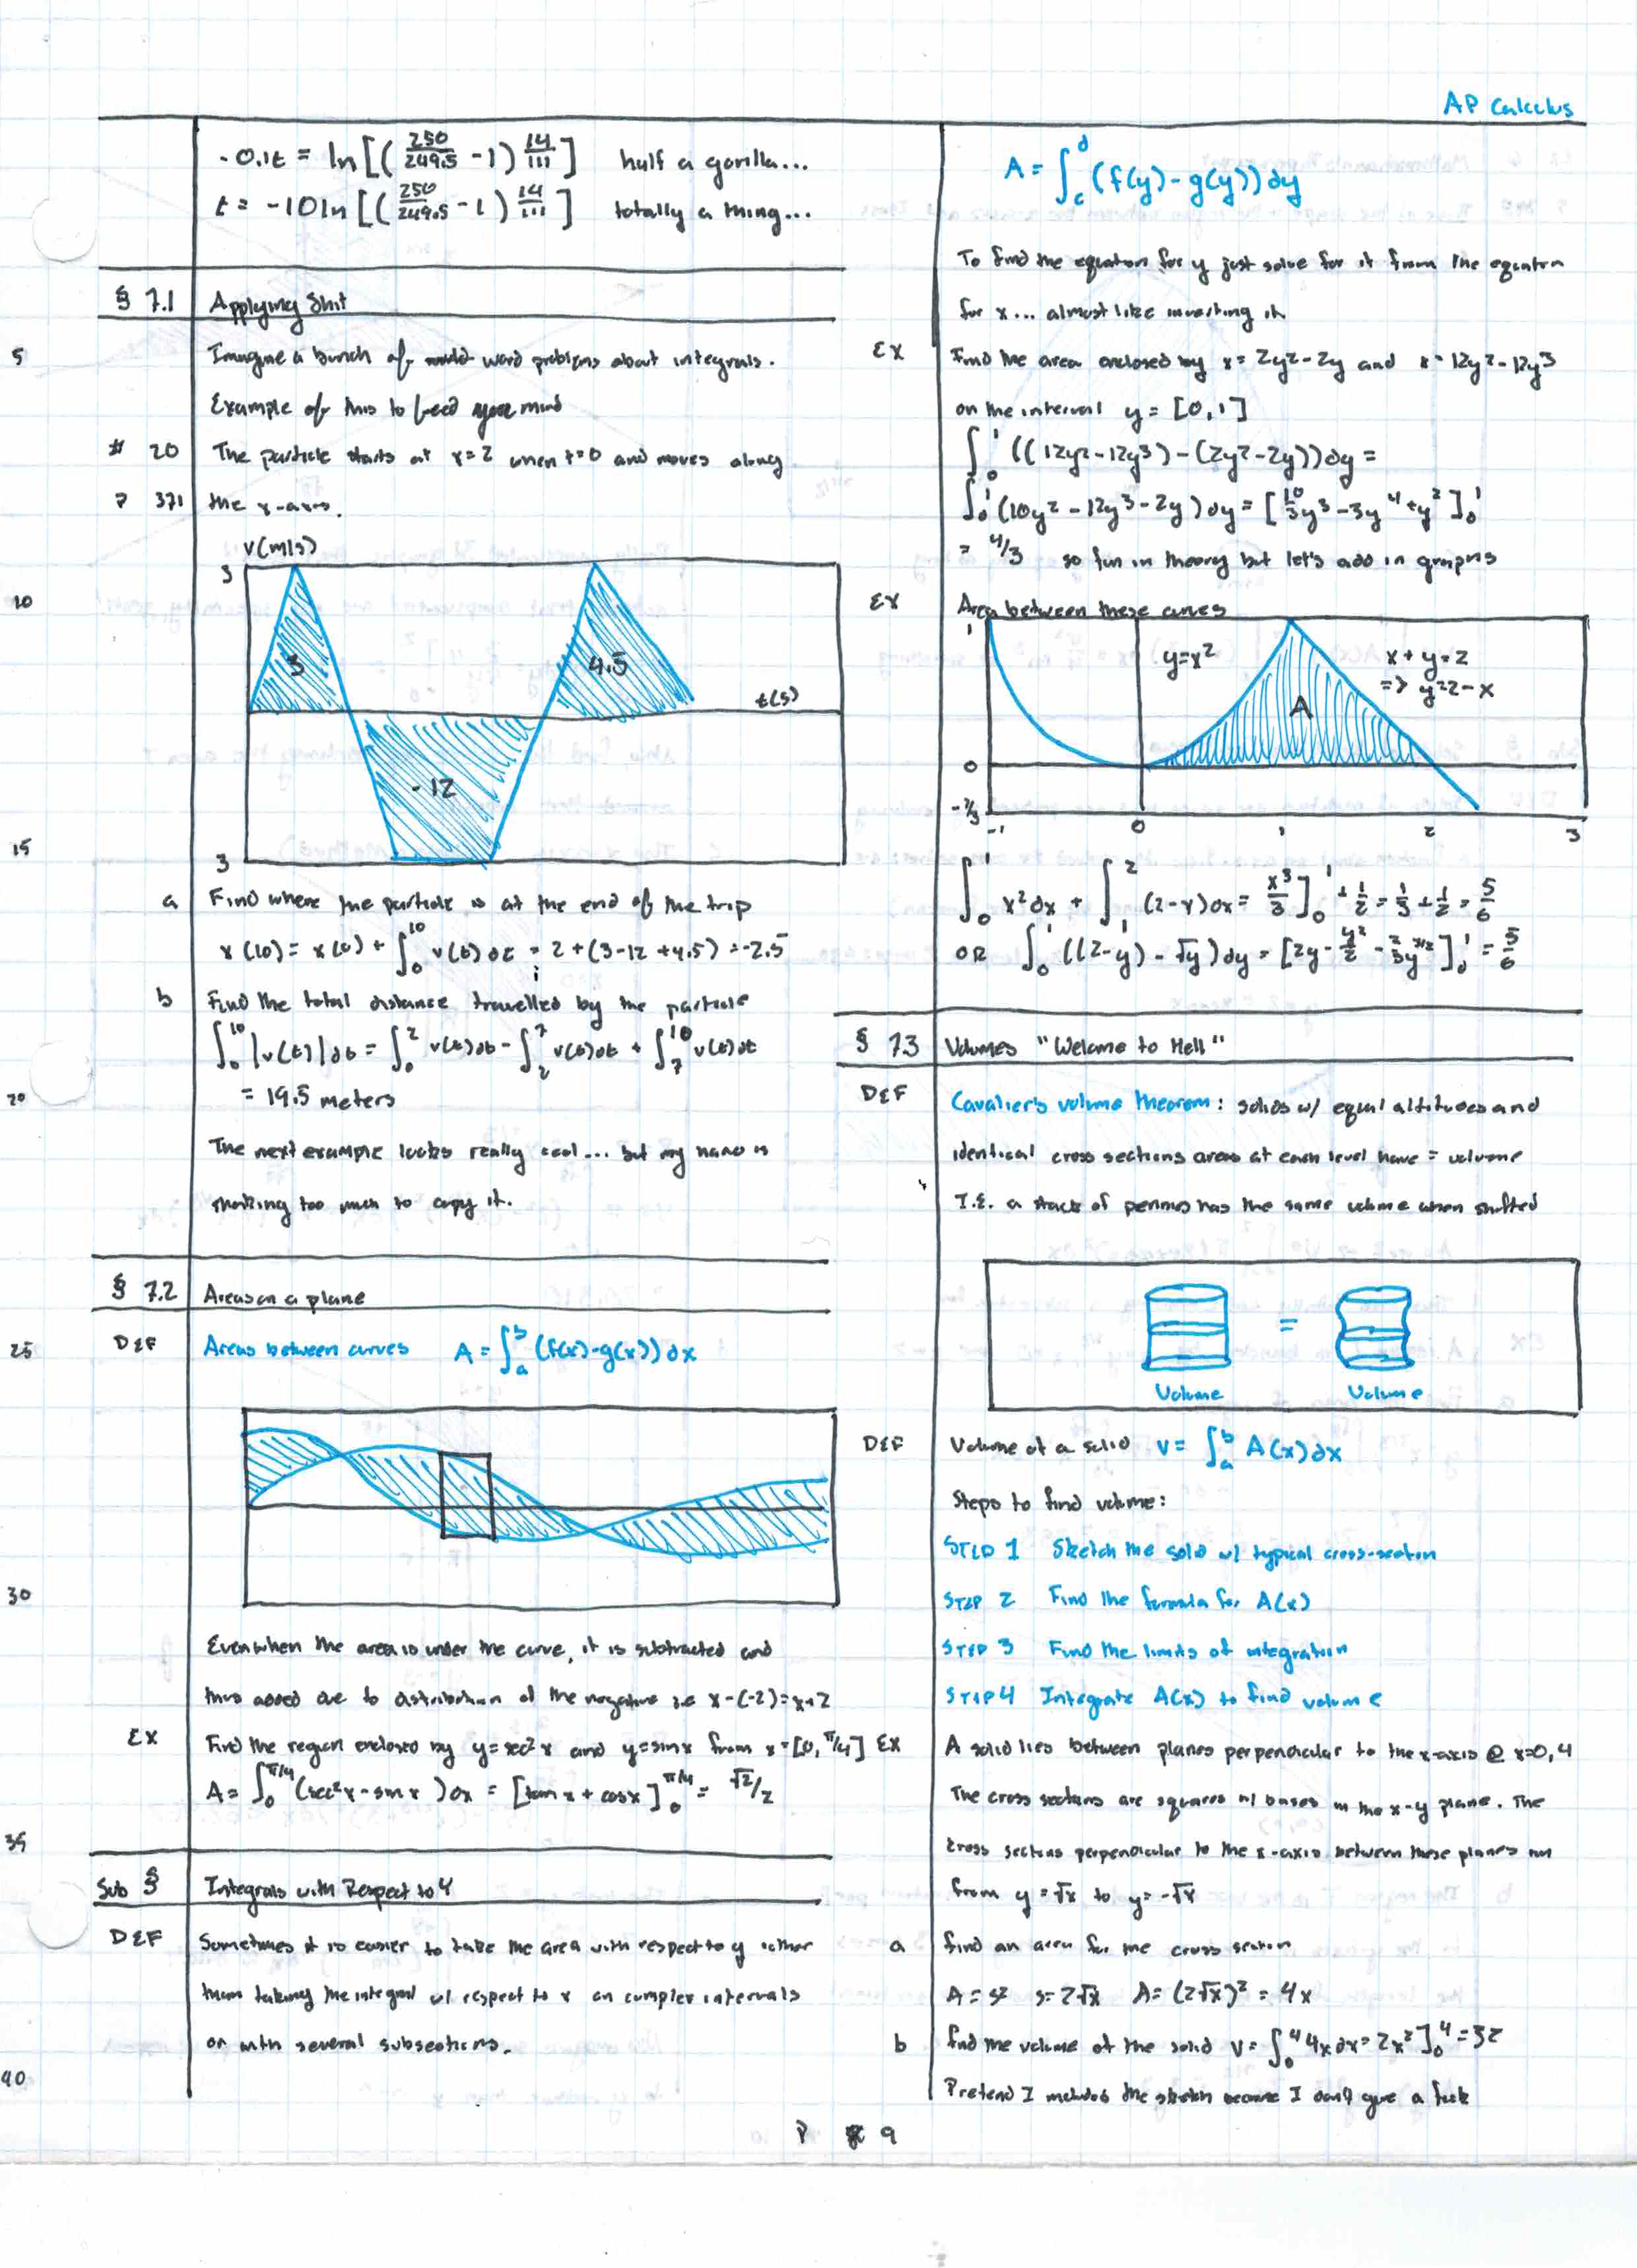 AP Calculus
-0.1t = ln[(250/249.5 -1) 14/111] half a gorilla...
t = -10ln[(250/249.5 -1) 14/111] totally a thing...
§ 7.1 Applying Shit
5 Imagine a bunch of word problems about integrals.
Example of this to feed your mind
# 20 The particle starts at x=2 when t=0 and moves along
P 371 the x-axis.
v(m/s)
3
10
3
4.5
t(s)
-12
15
3
a Find where the particle is at the end of the trip
x(10) = x(0) + ∫₀¹⁰ v(t)dt = 2+(3-12+4.5) = -2.5
b Find the total distance travelled by the particle
∫₀¹⁰ |v(t)|dt = ∫₀² v(t)dt - ∫₂⁷ v(t)dt + ∫₇¹⁰ v(t)dt
20 = 19.5 meters
The next example looks really cool... but my hand is
shaking too much to copy it.
§ 7.2 Areas on a plane
25 DEF Areas between curves A = ∫ₐᵇ (f(x)-g(x))dx
30
Even when the area is under the curve, it is subtracted and
thus added due to distribution of the negative i.e x-(-2)=x+2
EX Find the region enclosed by y=sec²x and y=sinx from x=[0,π/4]
A = ∫₀^π/4 (sec²x-sinx)dx = [tanx + cosx]₀^π/4 = √2/2
35
Sub § Integrals with Respect to Y
DEF Sometimes it is easier to take the area with respect to y rather
than taking the integral w/ respect to x on complex intervals
or with several subsections.
40
A = ∫_c^d (f(y)-g(y))dy
To find the equation for y just solve for it from the equation
for x... almost like inverting it
EX Find the area enclosed by x = 2y²-2y and x = 12y²-12y³
on the interval y = [0,1]
∫₀¹ ((12y²-12y³)-(2y²-2y))dy =
∫₀¹ (10y²-12y³-2y)dy = [10/3y³-3y⁴+y²]₀¹
= 4/3 so fun in theory but let's add in graphs
EX Area between these curves
1
y=x²
x+y=2
=> y=2-x
A
0
-⅓
-1 0 1 2 3
∫₀¹ x²dx + ∫₁² (2-x)dx = x³/3]₀¹ + 1/2 = 1/3 + 1/2 = 5/6
OR ∫₀¹ ((2-y)-√y)dy = [2y - y²/2 - 2/3y^3/2]₀¹ = 5/6
§ 7.3 Volumes "Welcome to Hell"
DEF Cavalier's volume theorem: solids w/ equal altitudes and
identical cross sections areas at each level have = volume
I.E. a stack of pennies has the same volume when shifted
=
Volume Volume
DEF Volume of a solid V = ∫ₐᵇ A(x)dx
Steps to find volume:
STEP 1 Sketch the solid w/ typical cross-section
STEP 2 Find the formula for A(x)
STEP 3 Find the limits of integration
STEP 4 Integrate A(x) to find volume
EX A solid lies between planes perpendicular to the x-axis @ x=0,4
The cross sections are squares w/ bases in the x-y plane. The
cross sections perpendicular to the x-axis between these planes run
from y=√x to y=-√x
a find an area for the cross section
A = s² s=2√x A=(2√x)² = 4x
b find the volume of the solid V = ∫₀⁴ 4xdx = 2x²]₀⁴ = 32
Pretend I included the sketch because I don't give a fuck
P 9